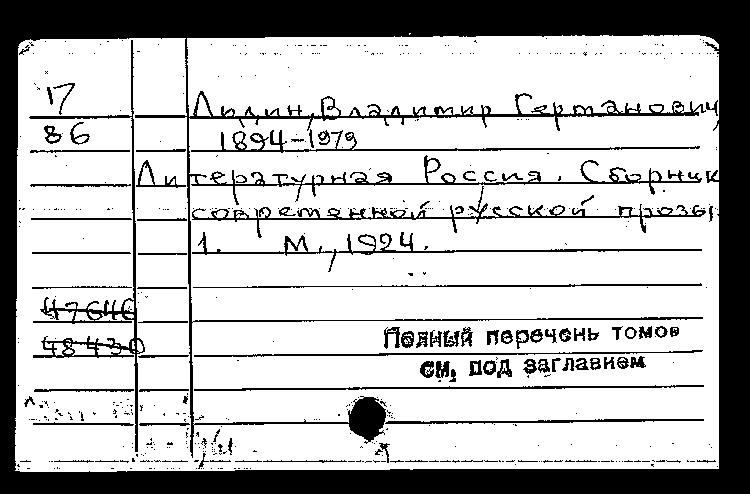 17
86
Лидин, Владимир Германович,
1894-1979
Литературная Россия. Сборник
современной русской прозы.
1. М., 1924.
47646
48430
Полный перечень томов
см, под заглавием